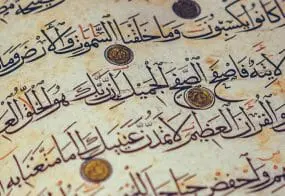 كانوا يكسبون وما خلقنا السموت والأرض وما
لآتية فاصفح الصفح الجميل إن ربك هو الخلق
والقرآن العظيم لا تمدن عينيك إلى ما متعنا به
واخفض جناحك